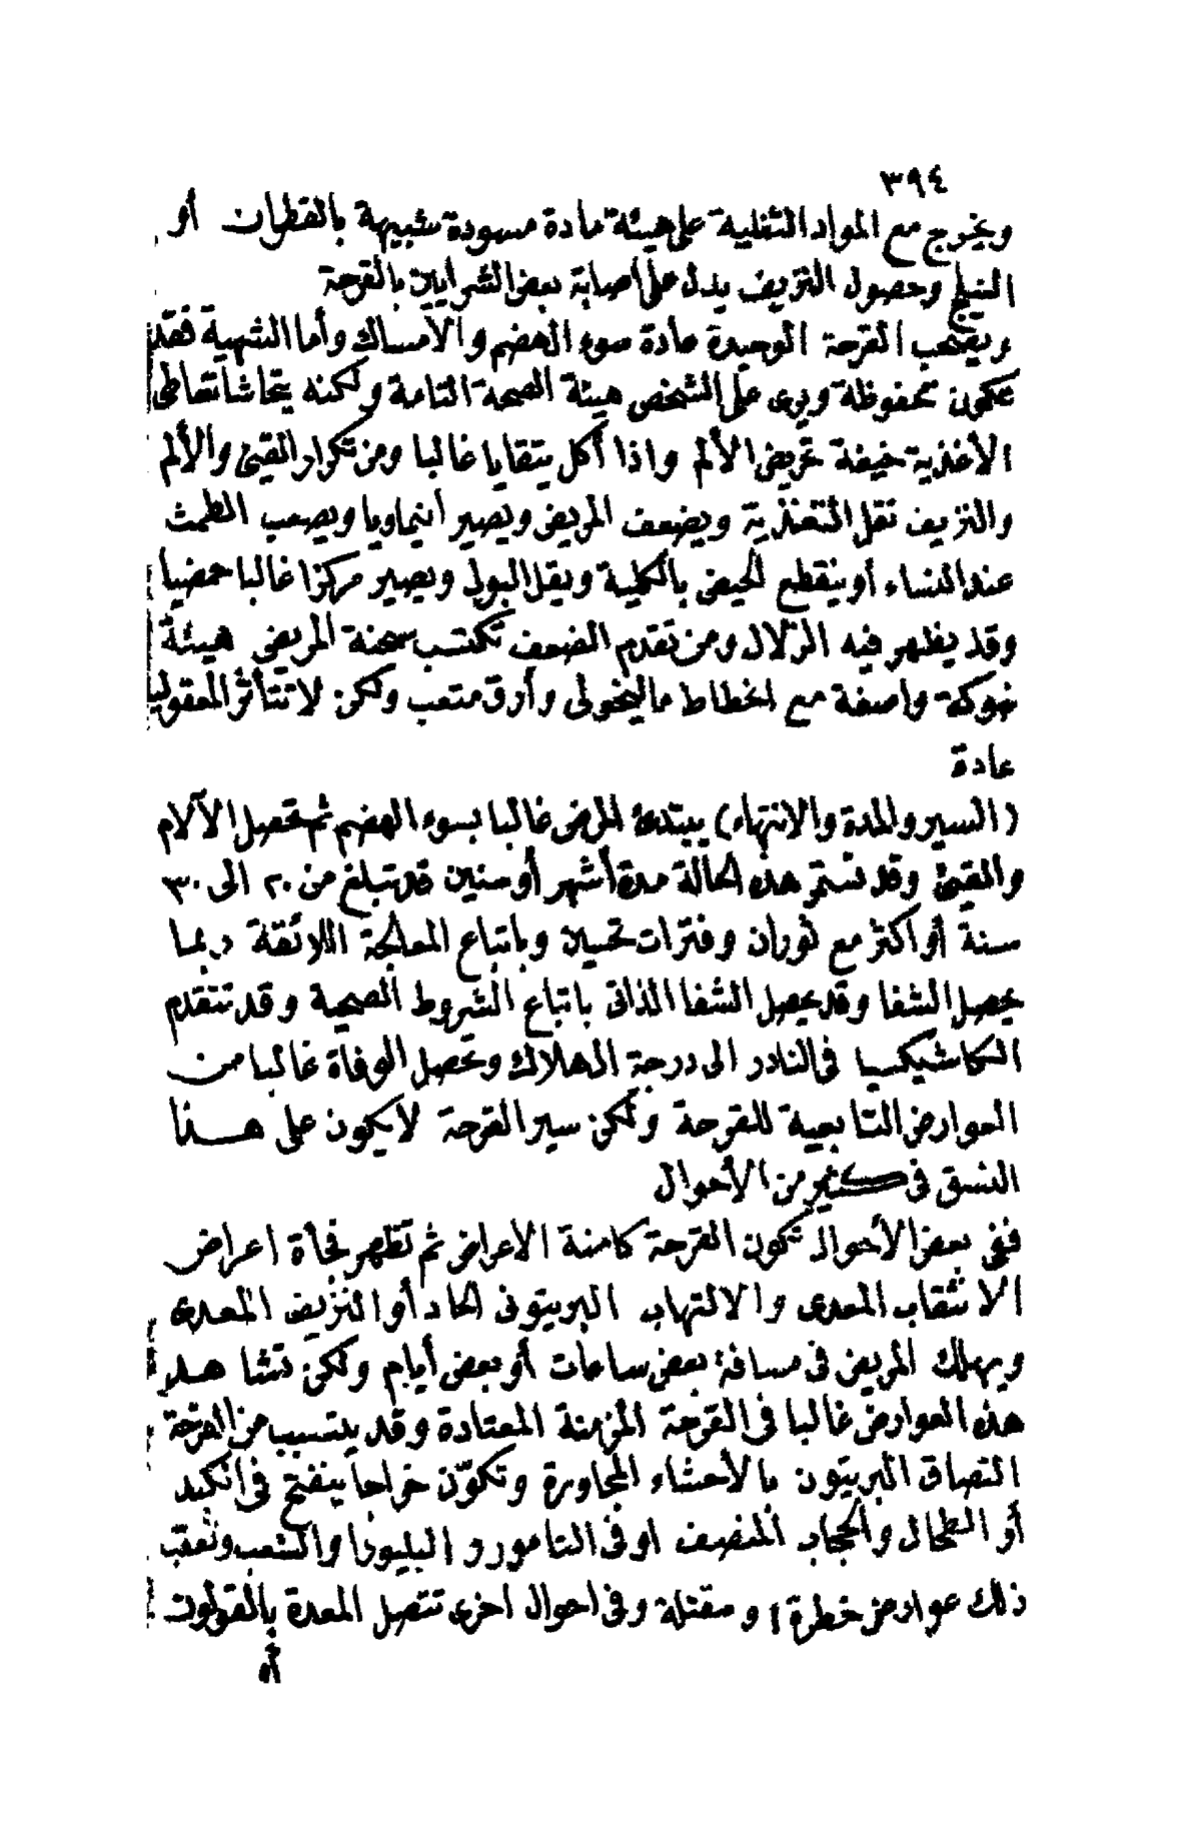 ٣٩٤
ويخرج مع المواد الثفلية على هيئة مادة مسودة شبيهة بالقطران أو
النيلج وحصول النزيف يدل على اصابة بعض الشرايين بالقرحة
ويصحب القرحة الوحيدة عادة سوء الهضم والامساك وأما الشهية فقد
تكون محفوظة ويرى على الشخص هيئة الصحة التامة ولكنه يتحاشا تعاطى
الأغذية خيفة تحريض الألم واذا أكل يتقايا غالبا ومن تكرار القيئ والألم
والنزيف تقل التغذية ويضعف المريض ويصير أنيماويا ويصعب الطمث
عند النساء أو ينقطع الحيض بالكلية ويقل البول ويصير مركزا غالبا حمضيا
وقد يظهر فيه الزلال ومن تقدم الضعف تكتسب سحنة المريض هيئة
نهوكة واصفة مع انحطاط ماليخولى وأرق متعب ولكن لا تتأثر المعقولية
عادة
(السير والمدة والانتهاء) يبتدئ المرض غالبا بسوء الهضم ثم تحصل الآلام
والقيئ وقد تستمر هذه الحالة مدة أشهر أو سنين قد تبلغ من ٢٠ الى ٣٠
سنة أو اكثر مع ثوران وفترات تحسين وباتباع المعالجة اللائقة ربما
يحصل الشفا وقد يحصل الشفا الذاتى باتباع الشروط الصحية وقد تتقدم
الكاشيكسيا فى النادر الى درجة الهلاك وتحصل الوفاة غالبا من
العوارض التابعية للقرحة ولكن سير القرحة لا يكون على هذا
النسق فى كثير من الأحوال
ففى بعض الأحوال تكون القرحة كامنة الاعراض ثم تظهر فجأة اعراض
الانثقاب المعدى والالتهاب البريتونى الحاد أو النزيف المعدى
ويهلك المريض فى مسافة بعض ساعات أو بعض أيام ولكن تنشا
هذه العوارض غالبا فى القرحة المزمنة المعتادة وقد يتسبب من القرحة
التصاق البريتون بالأحشاء المجاورة وتكوّن خراجا ينفتح فى الكبد
أو الطحال والحجاب المنصف او فى التامور و البليورا والشعب وتعقب
ذلك عوارض خطرة او مقتلة وفى احوال اخرى تتصل المعدة بالقولون
أو